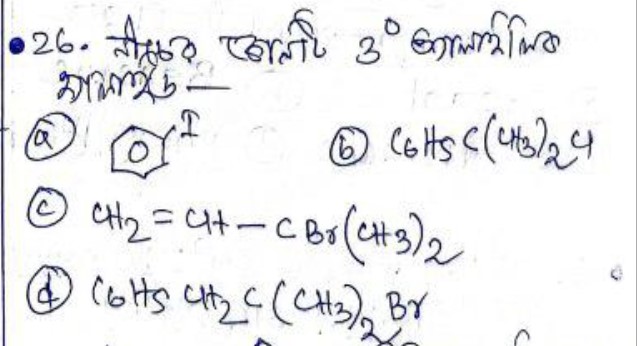 26. নীচের কোনটি 3° অ্যালাইলিক
হ্যালাইড —
(a) I (b) C6H5C(CH3)2Cl
(c) CH2 = CH - CBr(CH3)2
(d) C6H5CH2C(CH3)2Br